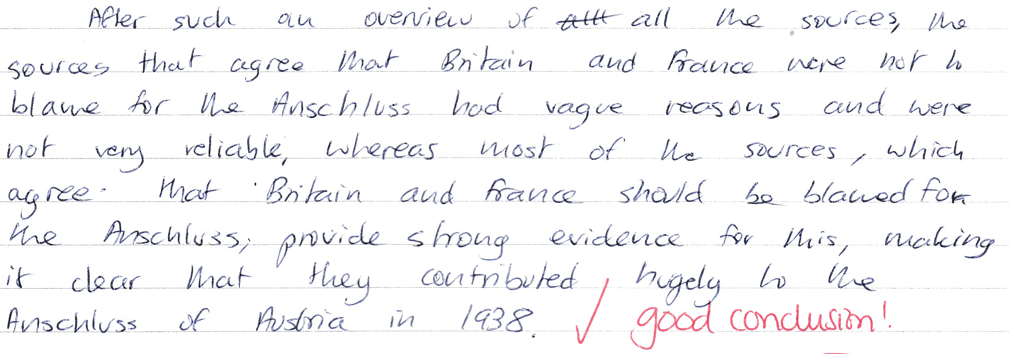 After such an overview of all the sources, the
sources that agree that Britain and France were not to
blame for the Anschluss had vague reasons and were
not very reliable, whereas most of the sources, which
agree that Britain and France should be blamed for
the Anschluss, provide strong evidence for this, making
it clear that they contributed hugely to the
Anschluss of Austria in 1938. ✓ good conclusion!